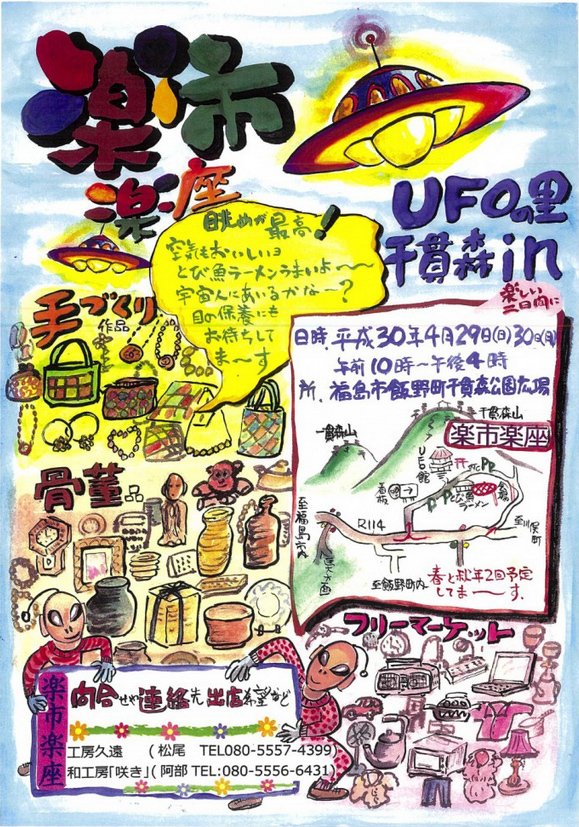 楽市
楽座
UFOの里
千貫森in
眺めが最高!
空気もおいしいヨ
とび魚ラーメンうまいよ〜〜
宇宙人にあいるかな〜?
目の保養にも
お待ちして
ま〜す
楽しい
二日間に
日時.平成30年4月29日(日)30日(月)
午前10時〜午後4時
所.福島市飯野町千貫森公園広場
手づくり
作品
千貫森山
一貫森山
楽市楽座
UFO館
看板
とび魚
ラーメン
R114
至福島市内
至川俣町
至飯野町内
春と秋年2回予定
してま〜す.
骨董品
フリーマーケット
楽市楽座
問合せや連絡先出店希望など
工房久遠 (松尾 TEL080-5557-4399)
和工房「咲き」(阿部 TEL:080-5556-6431)